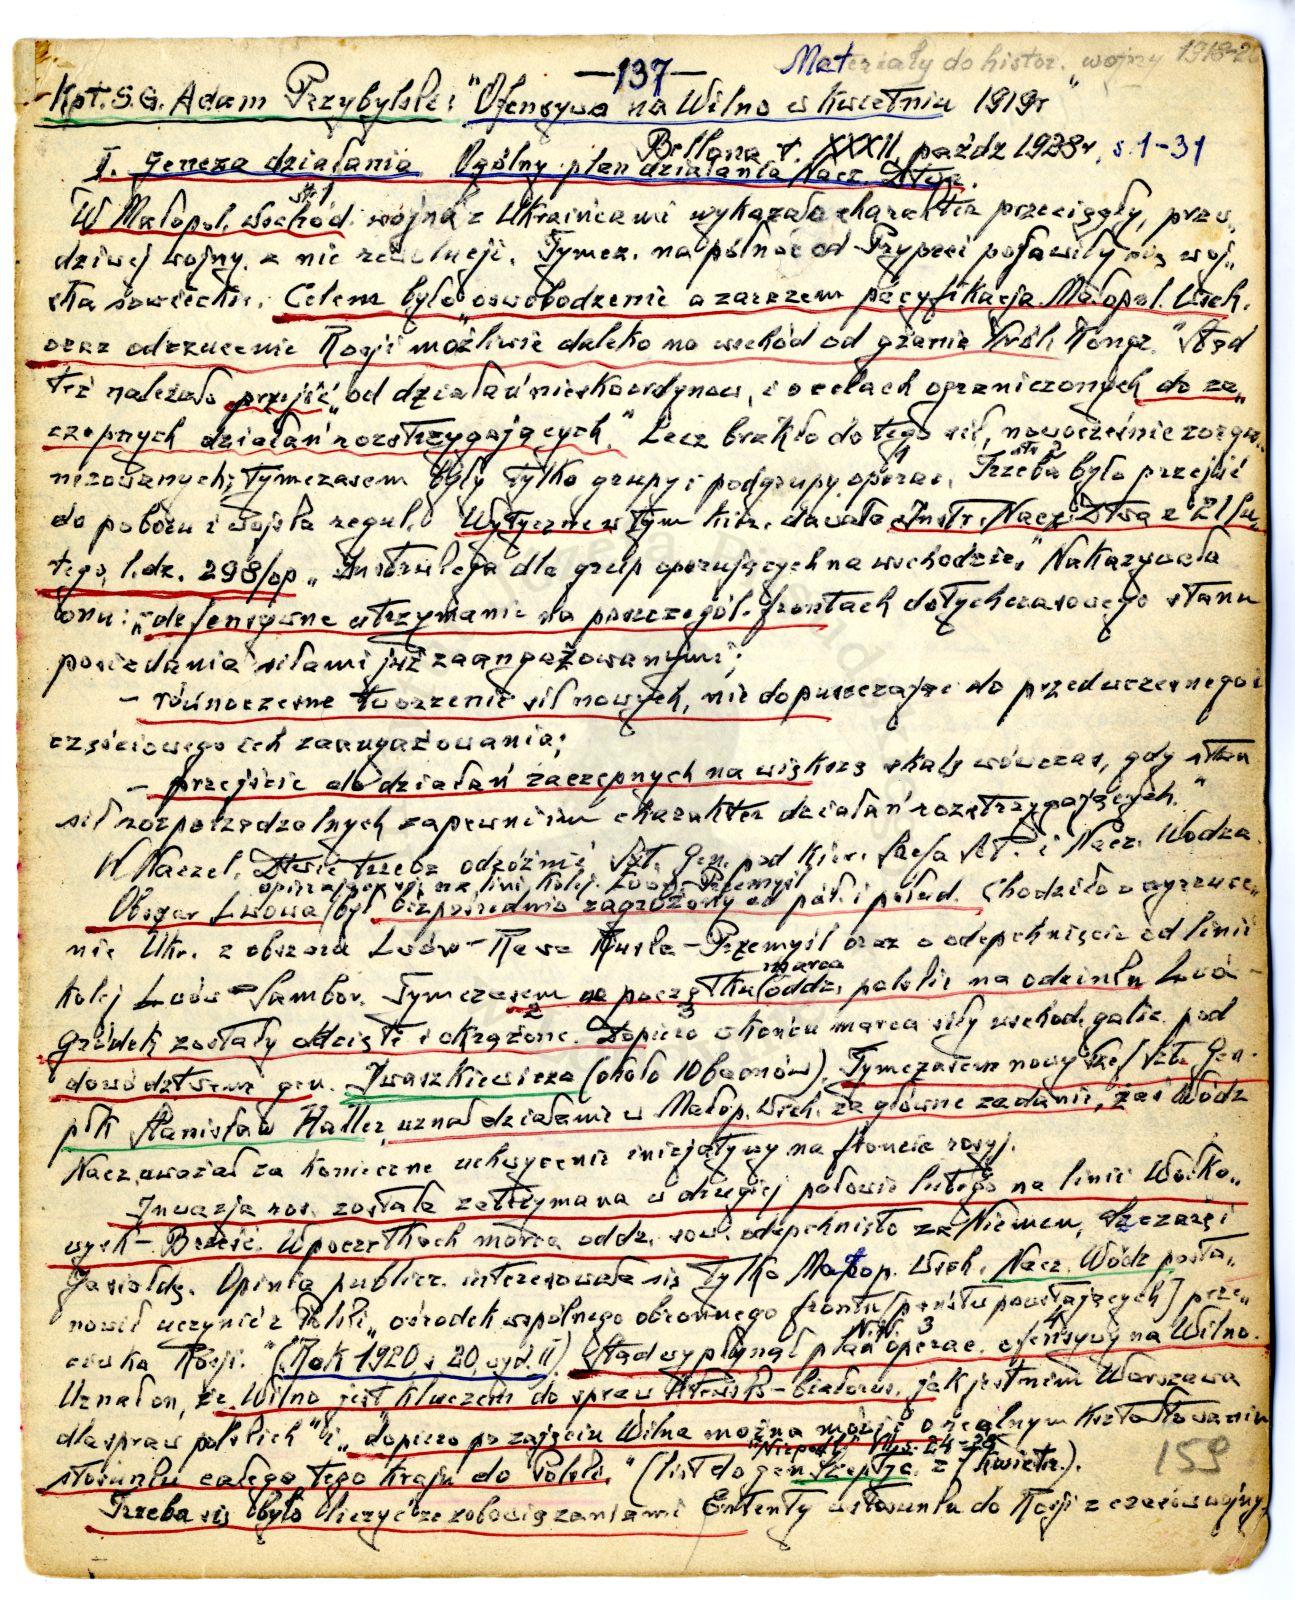 Materiały do histor. wojny 1918-20
—137—
Kpt. S.G. Adam Przybylski: "Ofensywa na Wilno w kwietniu 1919r"
Bellona t. XXXII, paźdz 1928r, s. 1-31
I. Geneza działania. Ogólny plan działania Nacz. Dtwa.
str 1
W Małopol. Wschód. wojna z Ukraińcami wykazała charakter przeciągły, praw„
dziwej wojny, a nie rewolucji. Tymcz. na północ od Prypeci pojawiły się woj„
ska sowieckie. Celem było „oswobodzenie a zarazem pacyfikacja Małopol. Wsch.
oraz odrzucenie Rosji możliwie daleko na wschód od granic Król. Kongr." Stąd
też należało przejść „od działań nieskoordynow. i o celach ograniczonych do za„
czepnych działań rozstrzygających." Lecz brakło do tego sił, nowocześnie zorga„
nizowanych; tymczasem były tylko grupy i podgrupy operac. Trzeba było przejść
str 2
do poboru i wojska regul. Wytyczne w tym kier. dawała Instr. Nacz. Dtwa z 21 lu„
tego, l.dz. 298/op „Instrukcja dla grup operujących na wschodzie." Nakazywała
ona: „- defensywne utrzymanie na poszczegól. frontach dotychczasowego stanu
posiadania siłami już zaangażowanymi;
- równoczesne tworzenie sił nowych, nie dopuszczając do przedwczesnego i
częściowego ich zaangażowania;
- przejście do działań zaczepnych na większą skalę wówczas, gdy stan
sił rozporządzalnych zapewni im charakter działań rozstrzygających."
W Naczel. Dtwie trzeba odróżnić Szt. Gen. pod kier. Szefa Szt. i Nacz. Wodza.
opierający się na linii kolej. Lwów-Przemyśl
Obszar Lwowa był bezpośrednio zagrożony od półn. i połud. Chodziło o wyrzuce„
nie Ukr. z obszaru Lwów-Rawa Ruska-Przemyśl oraz o odepchnięcie od linii
kolej Lwów-Sambor. Tymczasem na początku marca oddz. polskie na odcinku Lwów-
Gródek zostały odcięte i okrążone. Dopiero w końcu marca siły wschod. galic. pod
dowództwem gen. Iwaszkiewicza (około 10 baonów). Tymczasem nowy szef szt. Gen.
płk Stanisław Haller uznał działania w Małop. Wsch. za główne zadanie, zaś Wódz
Nacz. uważał za konieczne uchwycenie inicjatywy na froncie rosyj.
Inwazja ros. została zatrzymana w drugiej połowie lutego na linii Wołko„
wysk-Brześć. W początkach marca oddz. sow. odepchnięto za Niemen, Szczarę i
Jasiołdę. Opinia publicz. interesowała się tylko Małop. Wsch. Nacz. Wódz posta„
nowił uczynić z Polski „ośrodek wspólnego obronnego frontu [państw powstających] prze„
ciwko Rosji." (Rok 1920, s 20, wyd. II). Stąd wypłynął plan N.W. operac. ofensywy na Wilno.
Uznał on, że „Wilno jest kluczem do spraw litewsko-białorus., jak jest nim Warszawa
dla spraw polskich" i „dopiero po zajęciu Wilna można mówić o realnym kształtowaniu
stosunku całego tego kraju do Polski." (list do gen Szeptyc. z 7 kwietn.).
159
Trzeba się było liczyć ze zobowiązaniami Ententy w stosunku do Rosji z czasów wojny,